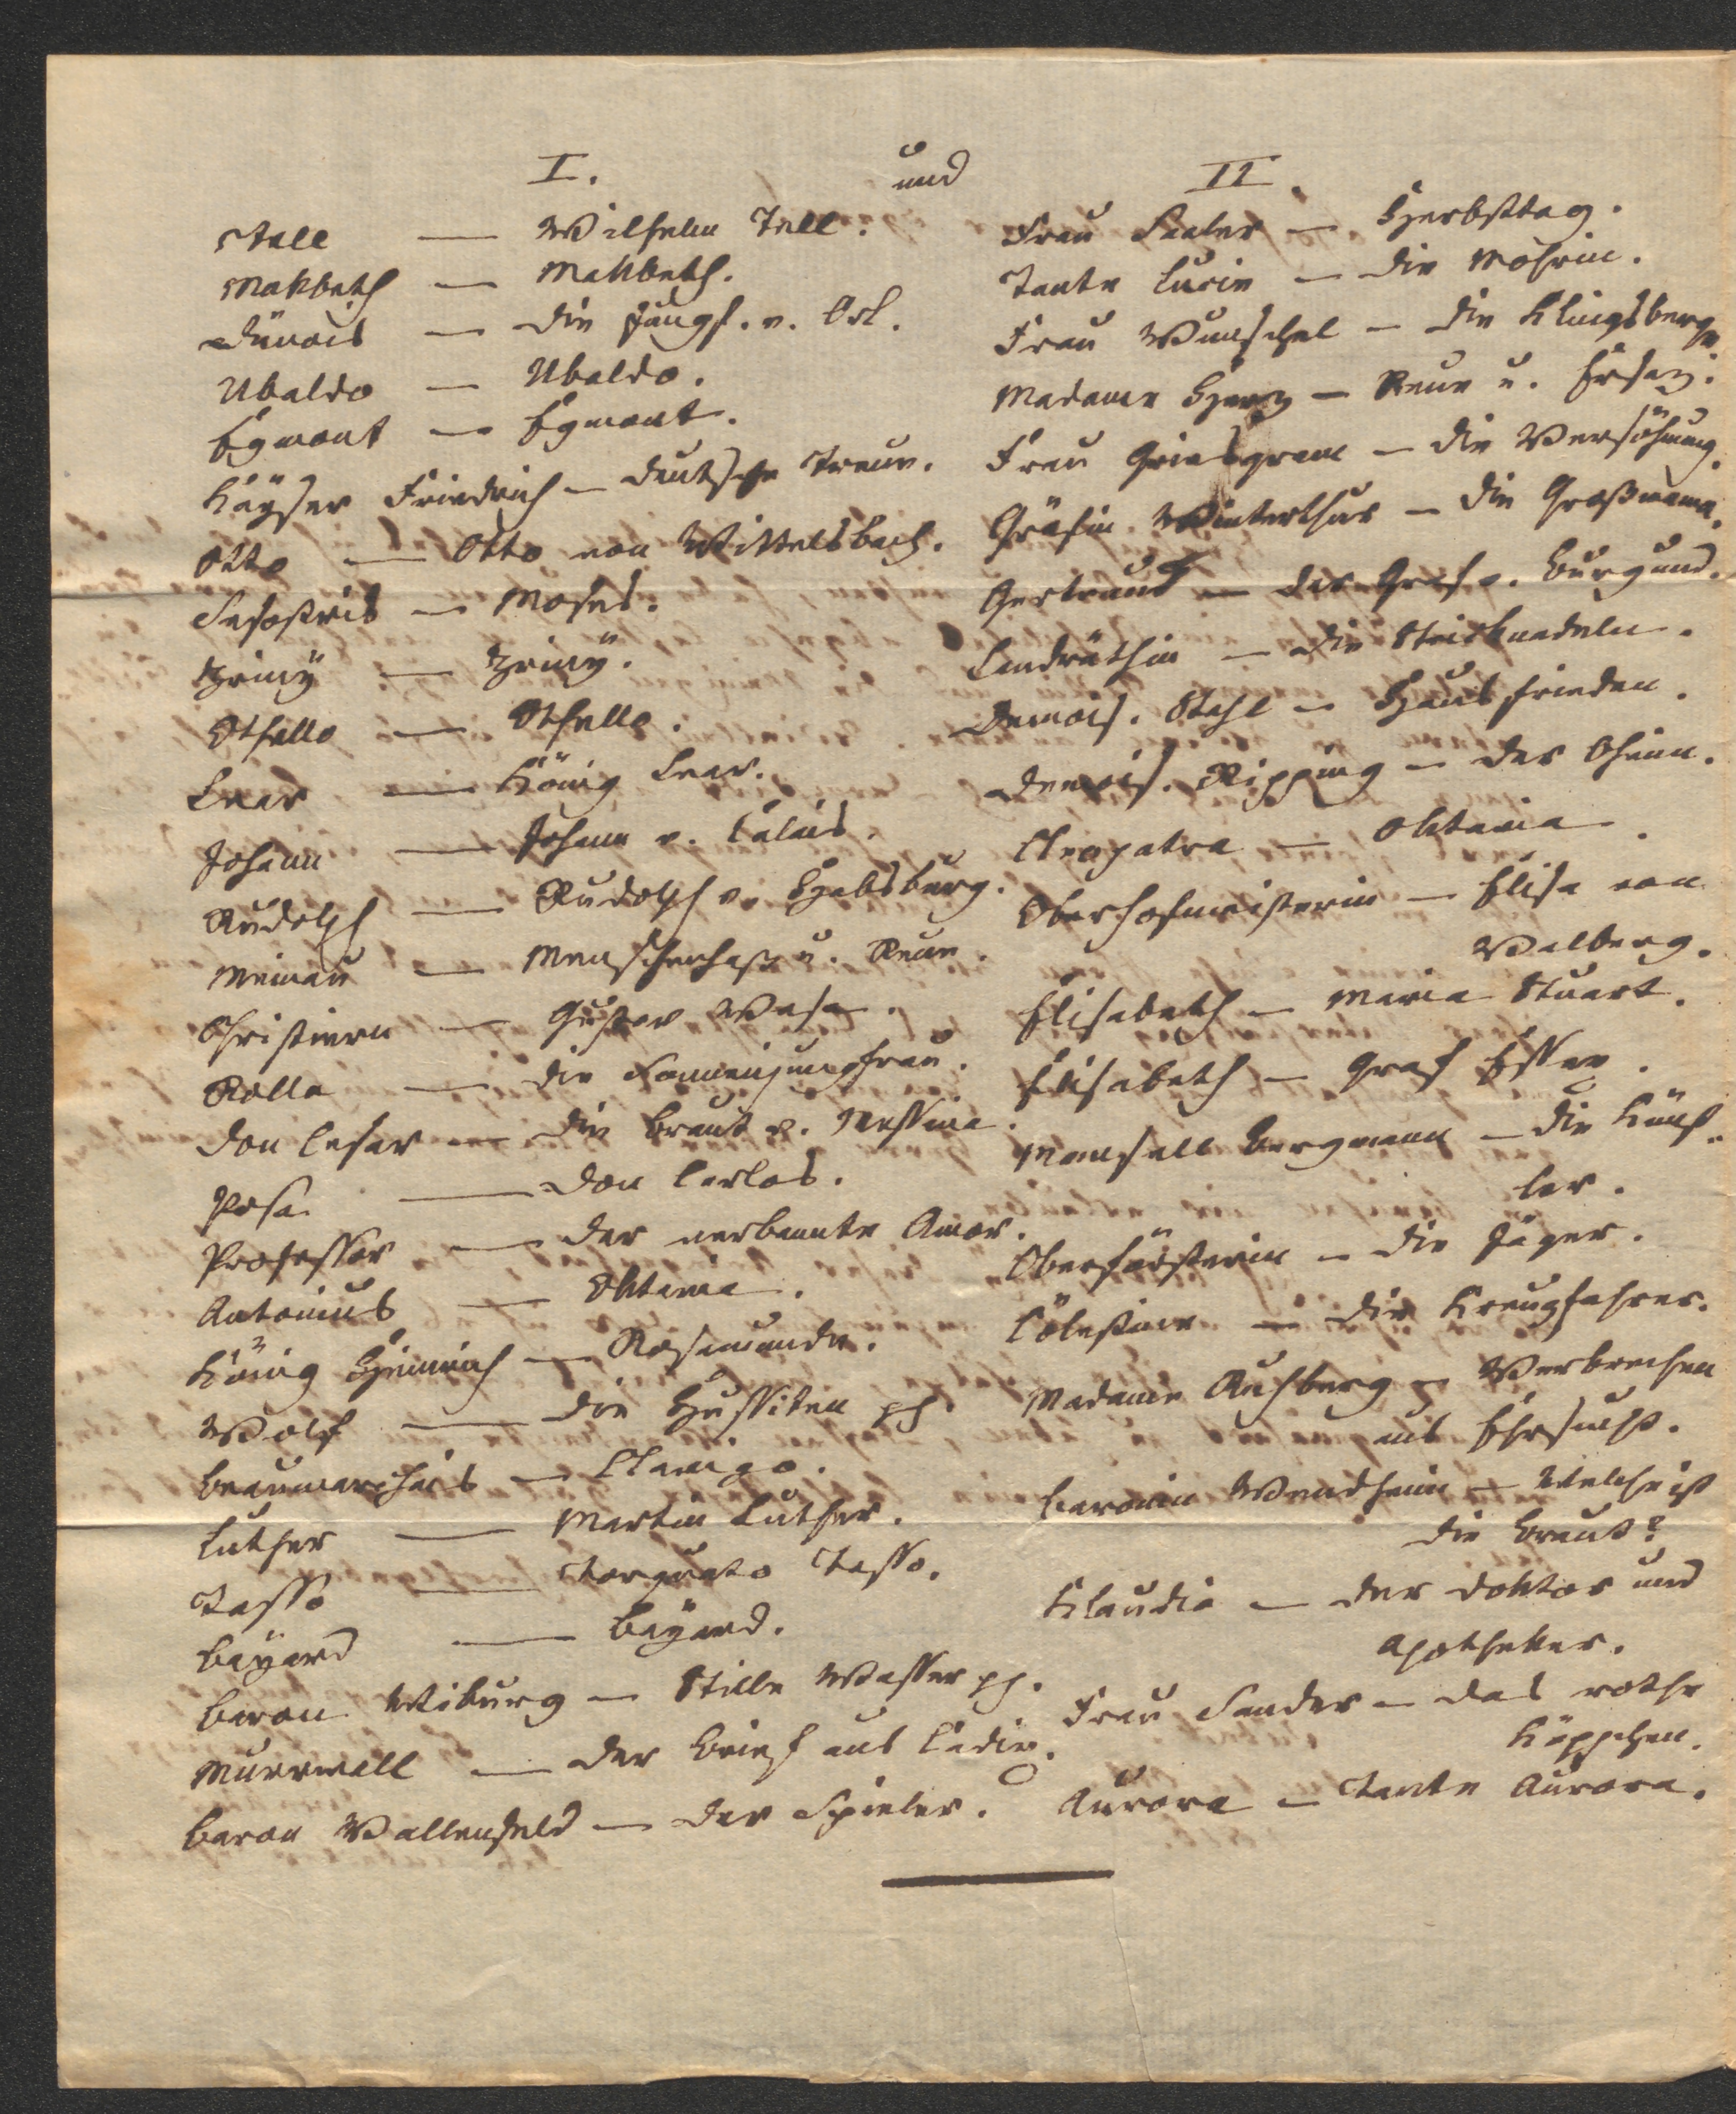 I. und II.
Tell — Wilhelm Tell.
Makbeth — Makbeth.
Dünois — Die Jungf. v. Orl.
Ubaldo — Ubaldo.
Egmont — Egmont.
Kayser Friedrich — Deutsche Treue.
Otto — Otto von Wittelsbach.
Sesostris — Moses.
Zriny — Zriny.
Othello — Othello.
Lear — König Lear.
Johann — Johann v. Calais.
Rudolph — Rudolph v. Habsburg.
Meinau — Menschenhaß u. Reue.
Christiern — Gustav Wasa.
Rolla — Die Sonnenjungfrau.
Don Cesar — Die Braut v. Messina.
Posa — Don Carlos.
Professor — Der verbannte Amor.
Antonius — Oktavia.
König Heinrich — Rosamunde.
Wolf — Die Hussiten pp.
Beaumarchais — Clavigo.
Luther — Martin Luther.
Tasso — Torquato Tasso.
Bayard — Bayard.
Baron Wiburg — Stille Wasser pp.
Murrwall — Der Brief aus Cadix.
Baron Wallenfeld — Der Spieler.
Frau Saaler — Herbsttag.
Tante Lucie — Die Mohrin.
Frau Wunschel — Die Klingsberge.
Madame Herz — Reue u. Ersaz.
Frau Griesgram — Die Versöhnung.
Gräfin Winterthur — Die Großmama.
Gertraud — Der Graf v. Burgund.
Landräthin — Die Stricknadeln.
Demois. Stahl — Hausfrieden.
Demois. Ripping — Der Oheim.
Cleopatra — Oktavia.
Oberhofmeisterin — Elise von
Valberg.
Elisabeth — Maria Stuart.
Elisabeth — Graf Essex.
Mamsell Bergmann — Die Künst-
ler.
Oberförsterin — Die Jäger.
Cölestine — Die Kreuzfahrer.
Madame Ruhberg — Verbrechen
aus Ehrsucht.
Baronin Wendheim — Welche ist
die Braut?
Klaudia — Der Doktor und
Apotheker.
Frau Sander — Das rothe
Käppchen.
Aurora — Tante Aurora.